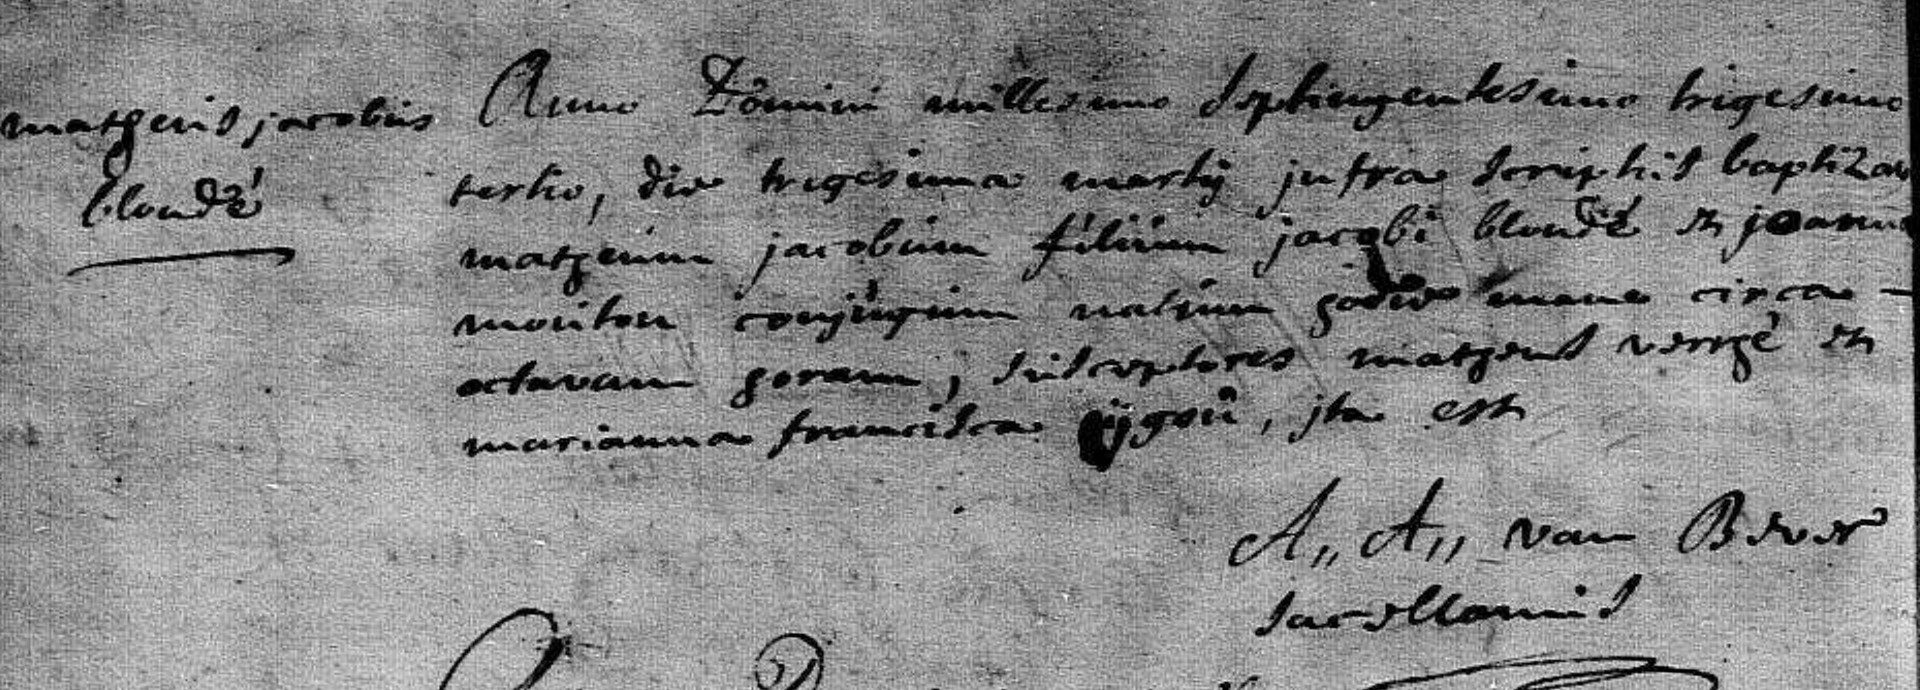 matheus jacobus
blondé
Anno Domini millesimo septingentesimo trigesimo
tertio, die trigesima martij infra scriptus baptizavi
matheum jacobum filium jacobi blondé et joanna
mouton conjugum natum hodie mane circa -
octavam horam, susceptores matheus verhé et
marianna francisca , ita est
A,, A,, van Bever
sacellanus